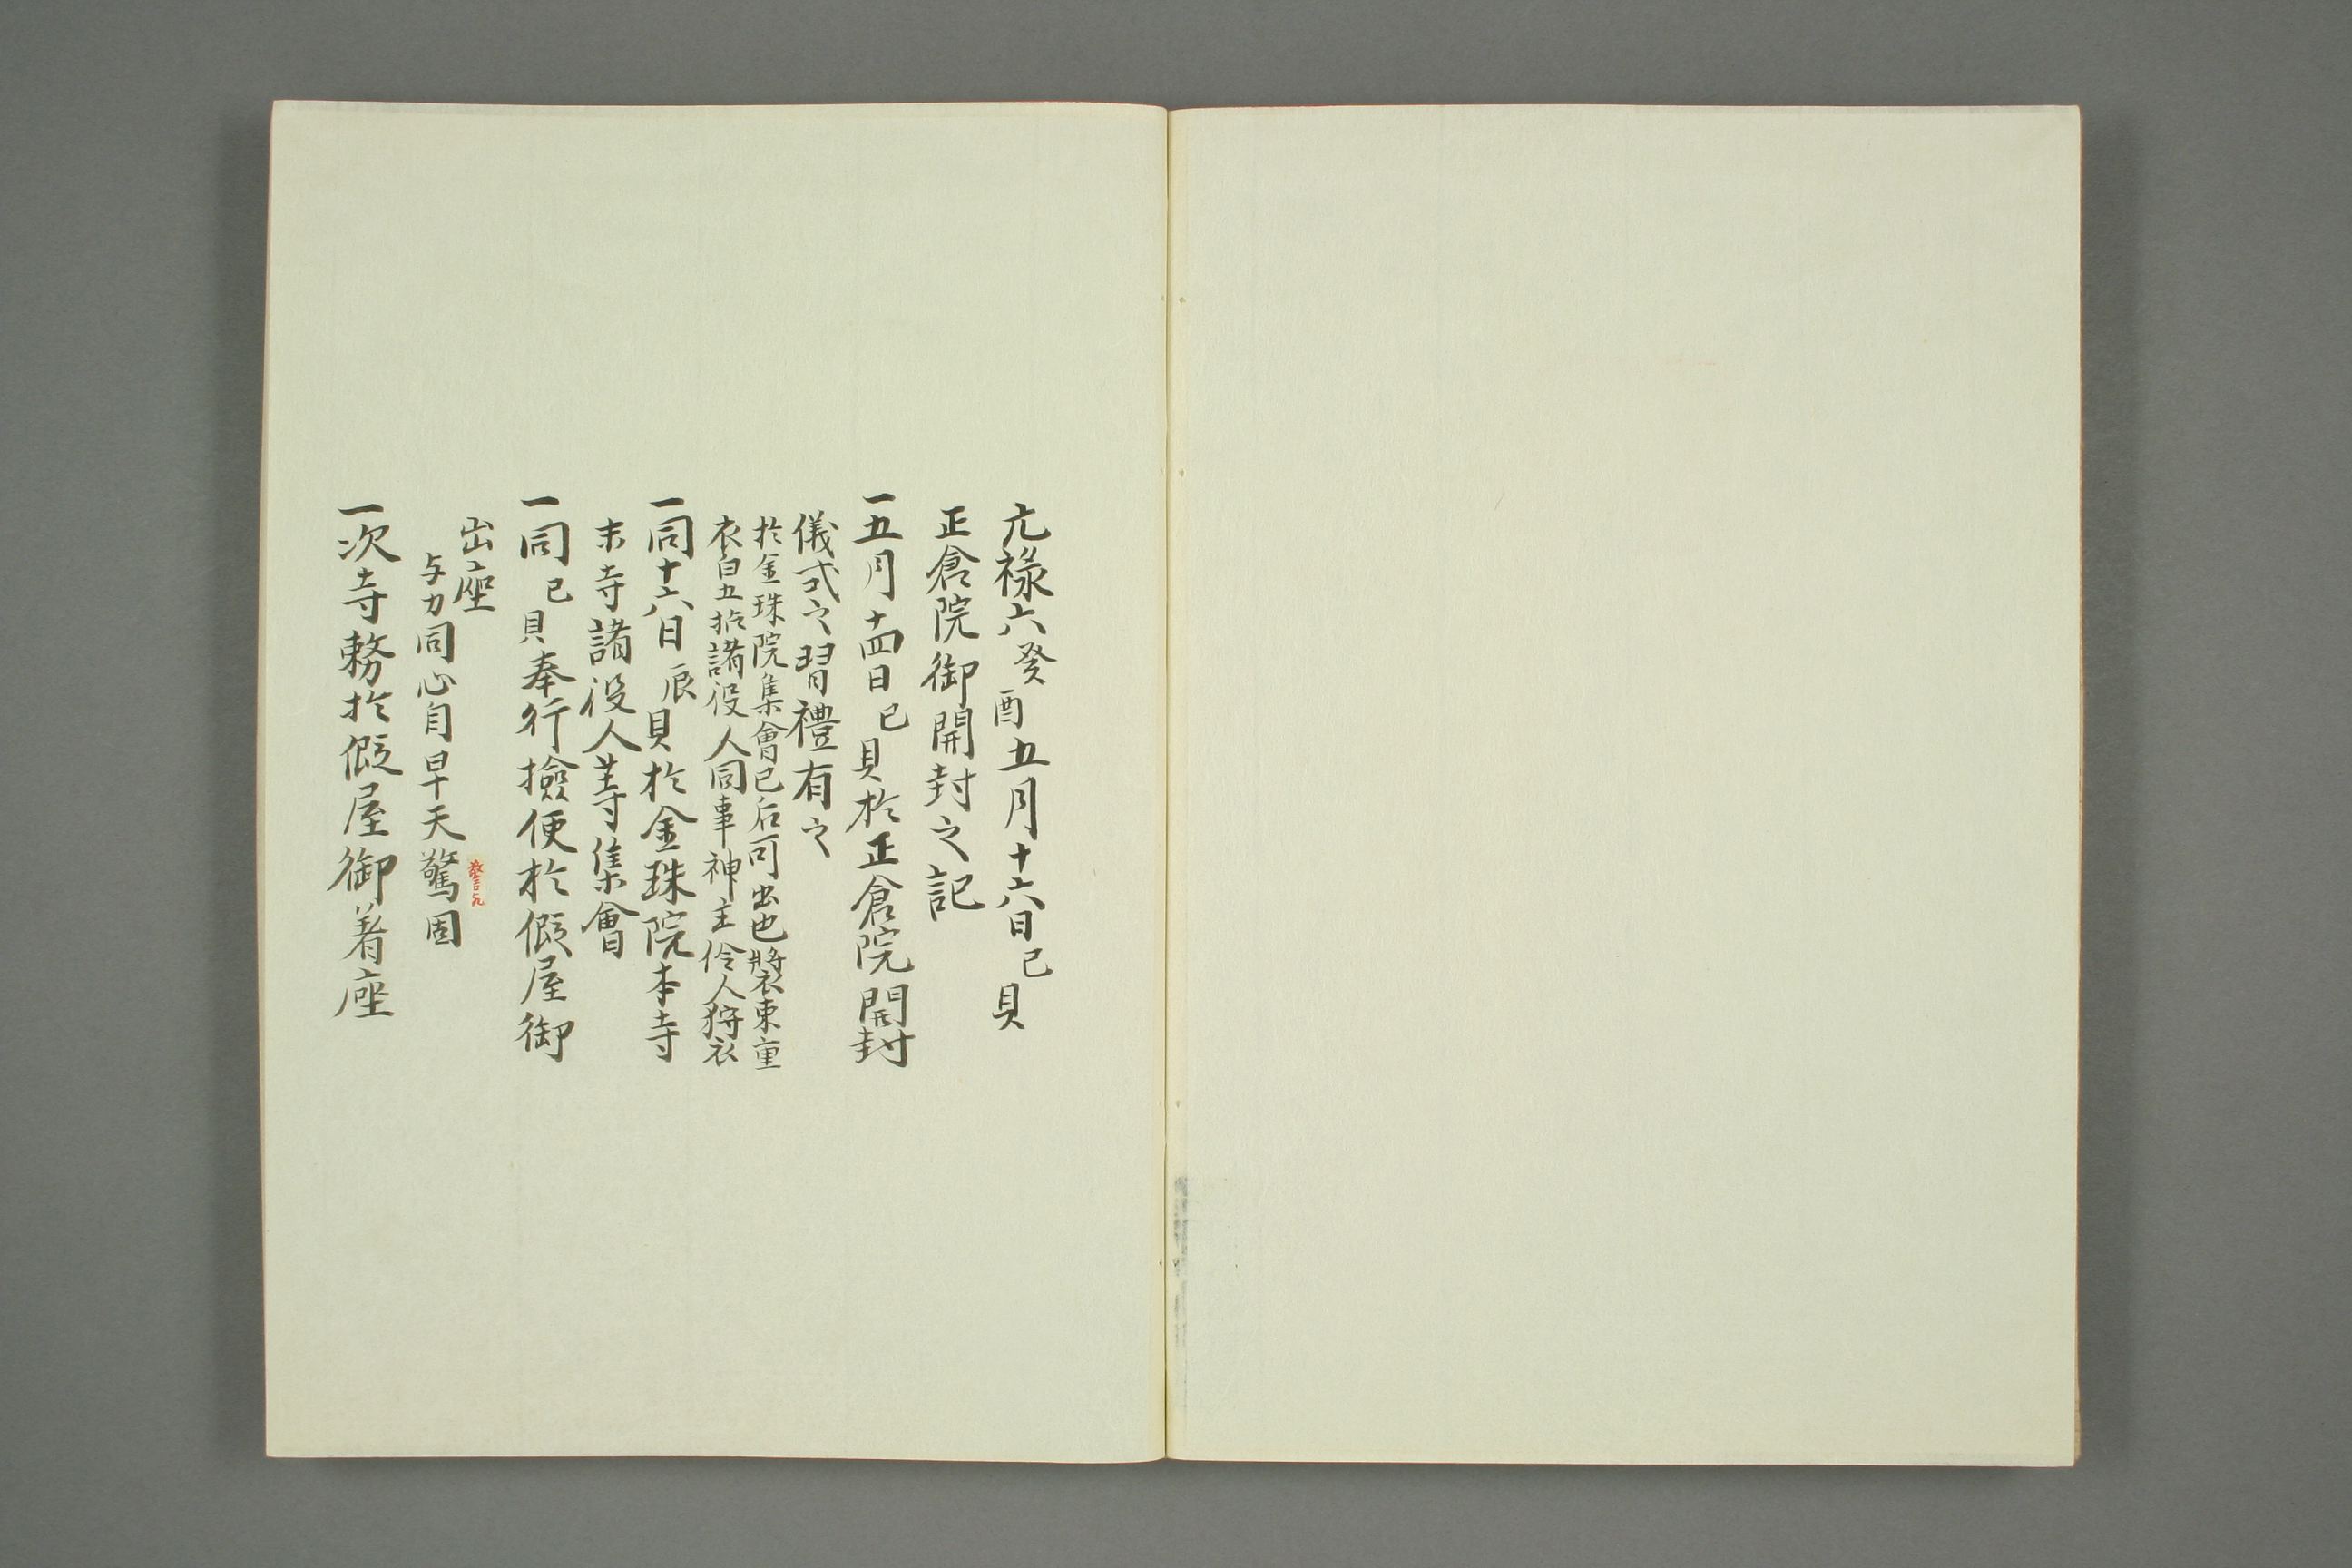 元禄六癸酉五月十六日巳貝
正倉院御開封之記
一五月十四日巳貝於正倉院開封
儀式之習禮有之
於金珠院集會已后可出也裝束重
衣白五拾諸役人同事神主伶人狩衣
一同十六日辰貝於金珠院本寺
末寺諸役人等集會
一同巳貝奉行撿使於假屋御
出座
与力同心自早天驚固
一次寺務於假屋御着座